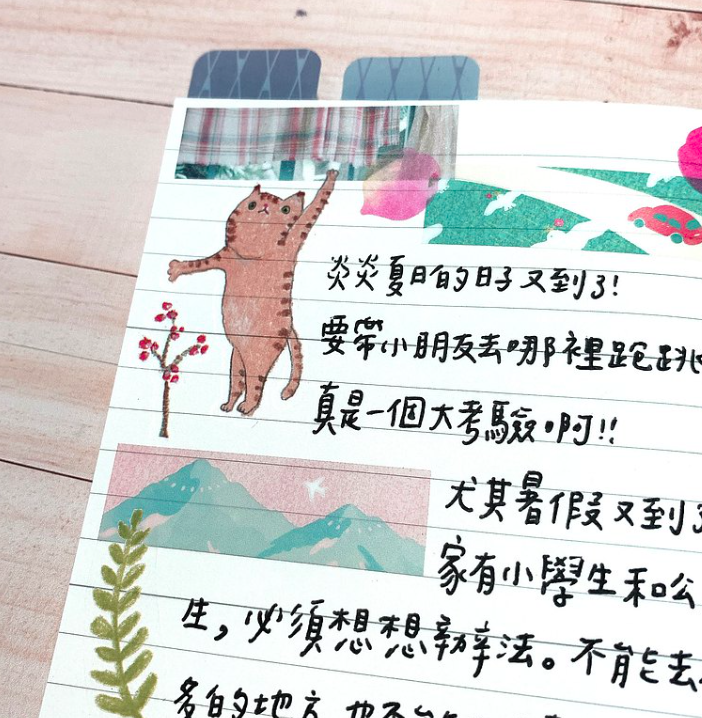 炎炎夏日的日子又到了!
要帶小朋友去哪裡跑跳
真是一個大考驗啊!!
尤其暑假又到了
家有小學生和公
生,必須想想辦法。不能去
多的地方